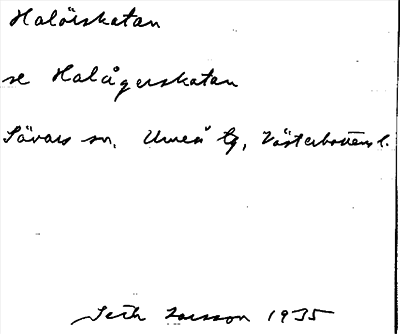 Holöiskatan
se Holågerskatan
Sävars sn. Umeå tg, Västerbottens l.
Seth Larsson 1935